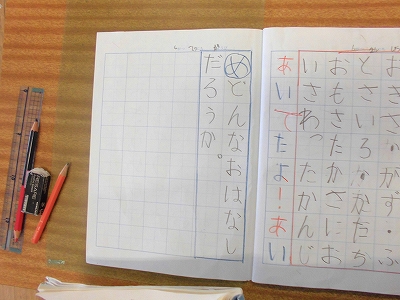 おきさ・かず・ふ
とさいろ・かたち
おもさたかさにお
いさわったかんじ
あいてたよ！あい
めどんなおはなし
だろうか。